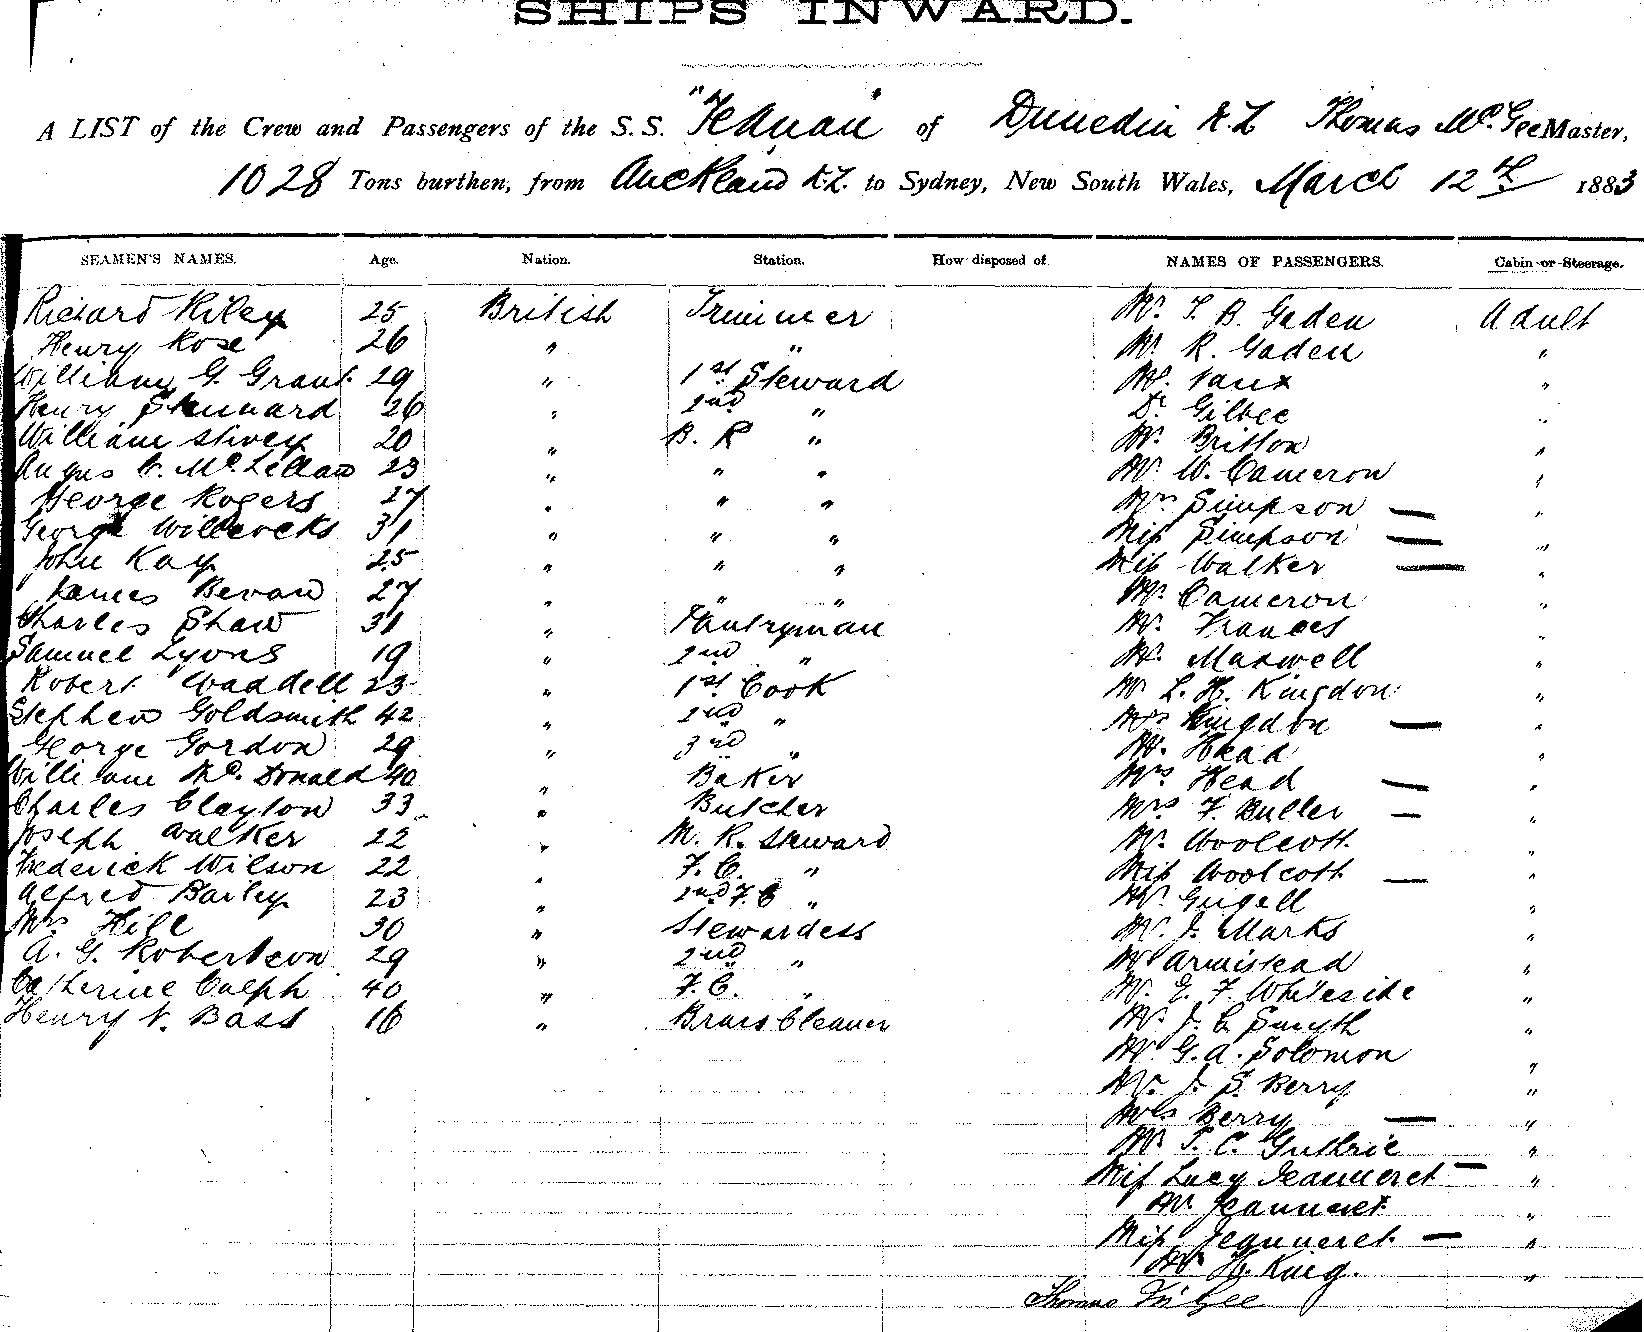 SHIPS INWARD.
A LIST of the Crew and Passengers of the S.S. "Te Anau" of Dunedin N.Z Thomas Mc.Gee Master,
1028 Tons burthen, from Auckland N.Z. to Sydney, New South Wales, March 12th 1883
SEAMEN'S NAMES. Age. Nation. Station. How disposed of. NAMES OF PASSENGERS. Cabin or Steerage.
Richard Riley 25 British Trimmer Mr. T. B. Gaden Adult
Henry Rose 26 " " Mr R. Gaden "
William G. Grant 29 " 1st Steward Mr. Vaux "
Henry Stennard 26 " 2nd " Dr Gilbee "
William Stivey 20 " B. R " Mr. Britton "
Angus W. Mc.Lellan 23 " " " Mr W. Cameron "
George Rogers 27 " " " Mrs Simpson — "
George Willcocks 31 " " " Miss Simpson — "
John Kay 25 " " " Miss Walker — "
James Bevan 27 " " " Mr. Cameron "
Charles Shaw 31 " Pantryman Mr. Frances "
Samuel Lyons 19 " 2nd " Mr. Maxwell "
Robert Waddell 23 " 1st Cook Mr L. H. Kingdon "
Stephen Goldsmith 42 " 2nd " Mrs Kingdon — "
George Gordon 29 " 3rd " Mr. Head "
William Mc.Donald 40 " Baker Mrs Head — "
Charles Clayton 33 " Butcher Mrs F. Buller — "
Joseph Walker 22 " M. R. Steward Mr. Woolcott "
Frederick Wilson 22 " F. C. " Miss Woolcott — "
Alfred Bailey 23 " 2nd F. C " Mr. Gugell "
Mrs Hill 30 " Stewardess Mr. J. Marks "
A. G. Robertson 29 " 2nd " Mr Armistead "
Catherine Culph 40 " F. C. " Mr. E. F. Whiteside "
Henry V. Bass 16 " Brass Cleaner Mr. J. C. Smyth "
Mr. G. A. Solomon "
Mr. J. S. Berry "
Mrs Berry — "
Mr. T. C. Guthrie "
Miss Lucy Jeanneret — "
Mr. Jeanneret "
Miss Jeanneret — "
Mr H. King. "
Thomas McGee